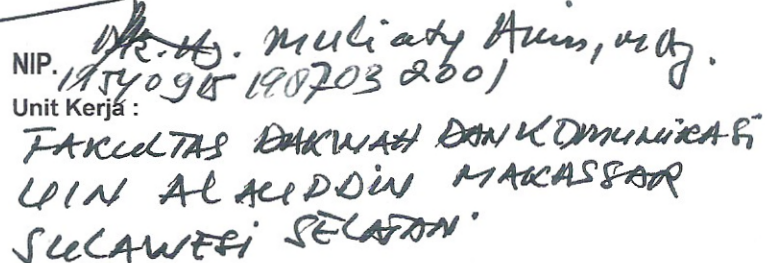 Dr. Hj. Muliaty Amin, M.Ag.
NIP. 19540915 198703 2001
Unit Kerja :
FAKULTAS DAKWAH DAN KOMUNIKASI
UIN ALAUDDIN MAKASSAR
SULAWESI SELATAN.